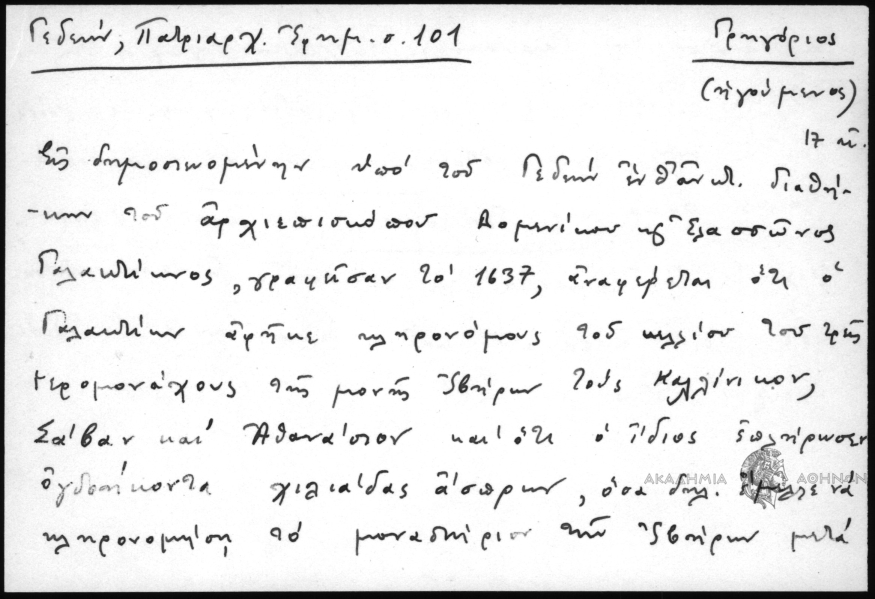 Γεδεών, Πατριαρχ. Ἐφημ. σ. 101
Γρηγόριος
(ἡγούμενος)
17 αἰ.
Εἰς δημοσιευομένην ὑπό τοῦ Γεδεών ἐνθ' ἀνωτ. διαθή-
-κην τοῦ ἀρχιεπισκόπου Δομενίκου κ' Ἐλασσῶνος
Γαλακτίωνος, γραφεῖσαν τό 1637, ἀναφέρεται ὅτι ὁ
Γαλακτίων ἀφῆκε κληρονόμους τοῦ κελλίου του τρεῖς
ιερομονάχους τῆς μονῆς Ἰβήρων τούς Καλλίνικον,
Σάββαν καί Ἀθανάσιον καί ὅτι ὁ ἴδιος ἐπλήρωσεν
ὀγδοήκοντα χιλιάδας ἄσπρων, ὅσα δηλ. ἔμελλε νά
κληρονομήσῃ τό μοναστήριον τῶν Ἰβήρων μετά
ΑΚΑΔΗΜΙΑ ΑΘΗΝΩΝ